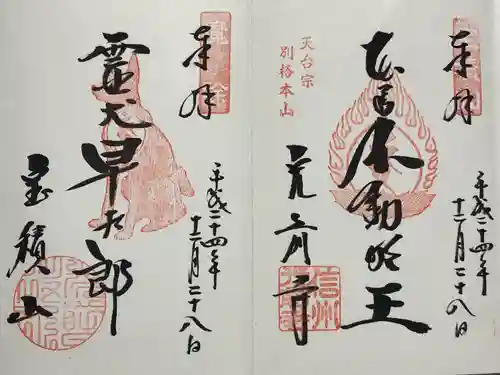 奉拝
平成二十四年
十二月二十八日
天台宗
別格本山
本尊不動明王
光前寺
信州
奉拝
平成二十四年
十二月二十八日
靈犬早太郎
宝積山